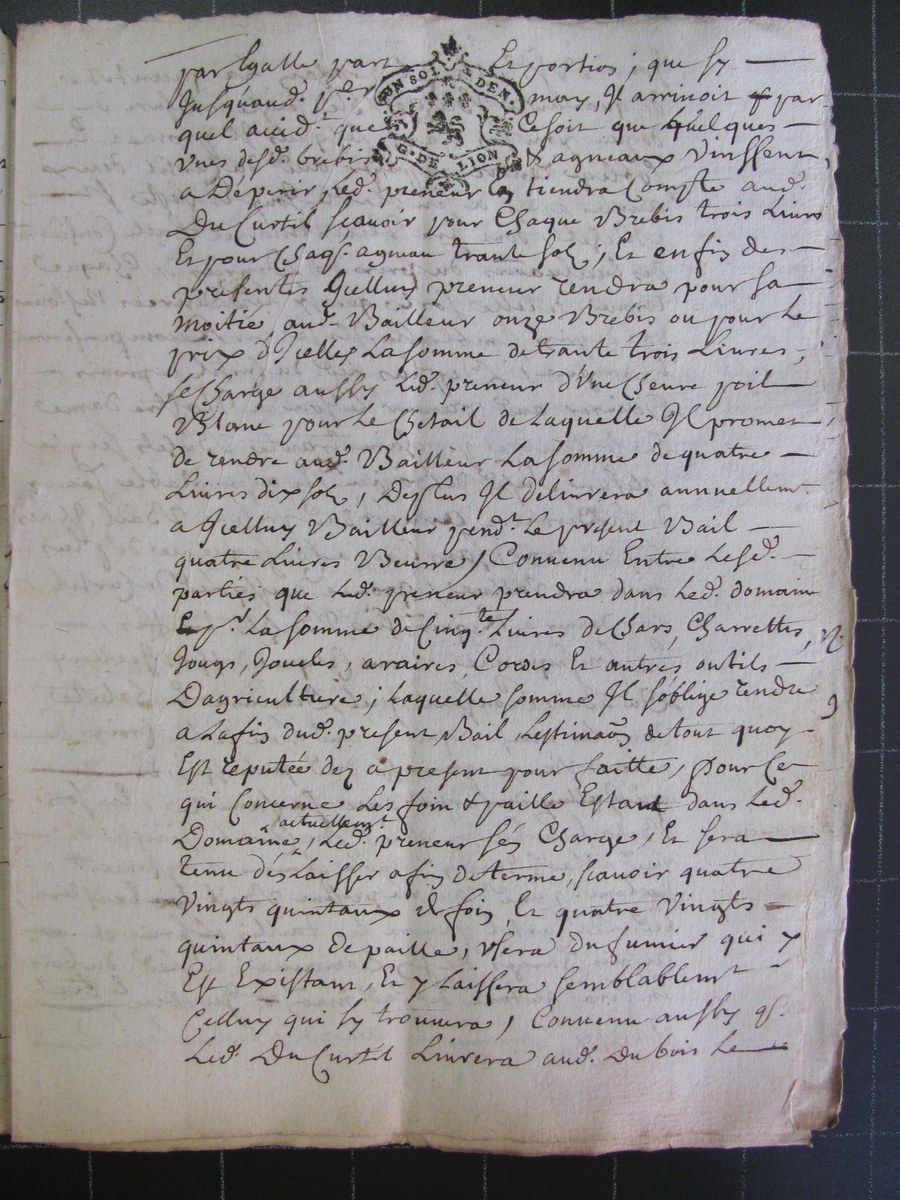 par Egalle part Et portion, que sy
UN SOL DEN.
G. DE LION
Jusqu'aud. pr. may, Il arrivoit par
quel accid.t que Cesoit que quelques
Unes desd. brebis & agneaux Vinssent
a Déperir, Led. preneur En tiendra Compte aud.
DuCurtil scavoir pour Chaque Brebis trois Livres
Et pour Chaq. agneau trante sols, Et enfin des
presentes Jcelluy preneur rendra pour sa
moitié aud. Bailleur onze Brebis ou pour Le
prix d'Jcelles La somme de trante trois Livres,
se Charge aussy Led. preneur d'Une Chevre poil
Blanc pour Le Chetail de Laquelle Jl promet
de rendre aud. Bailleur La somme de quatre
Livres dix sols, Deplus Jl delivrera annuellem.t
a Jcelluy Bailleur pend.t Le present Bail
quatre Livres Beurre, Convenu Entre Lesd.
parties que Led. preneur prendra dans Led. domaine
La somme de Cinq.te Livres de Chars, Charrettes,
Jougs, Joucles, araires, Cordes Et autres outils
Dagriculture, Laquelle somme Jl s'oblige rendre
a La fin dud. present Bail, Lestimaôn de tout quoy
Est reputée dez a present pour faitte, pour Ce
qui Concerne Les foin & paille Estant dans Led.
actuellem.t
Domaine, Led. preneur sên Charge, Et sera
tenu dês Laisser a fin de terme, scavoir quatre
Vingts quintaux de foin Et quatre Vingts
quintaux de paille, Usera du fumier qui y
Est Existant, Et y Laissera semblablemt
Celluy qui sy trouvera, Convenu aussy q.
Led. DuCurtil Livrera aud. Dubois Le